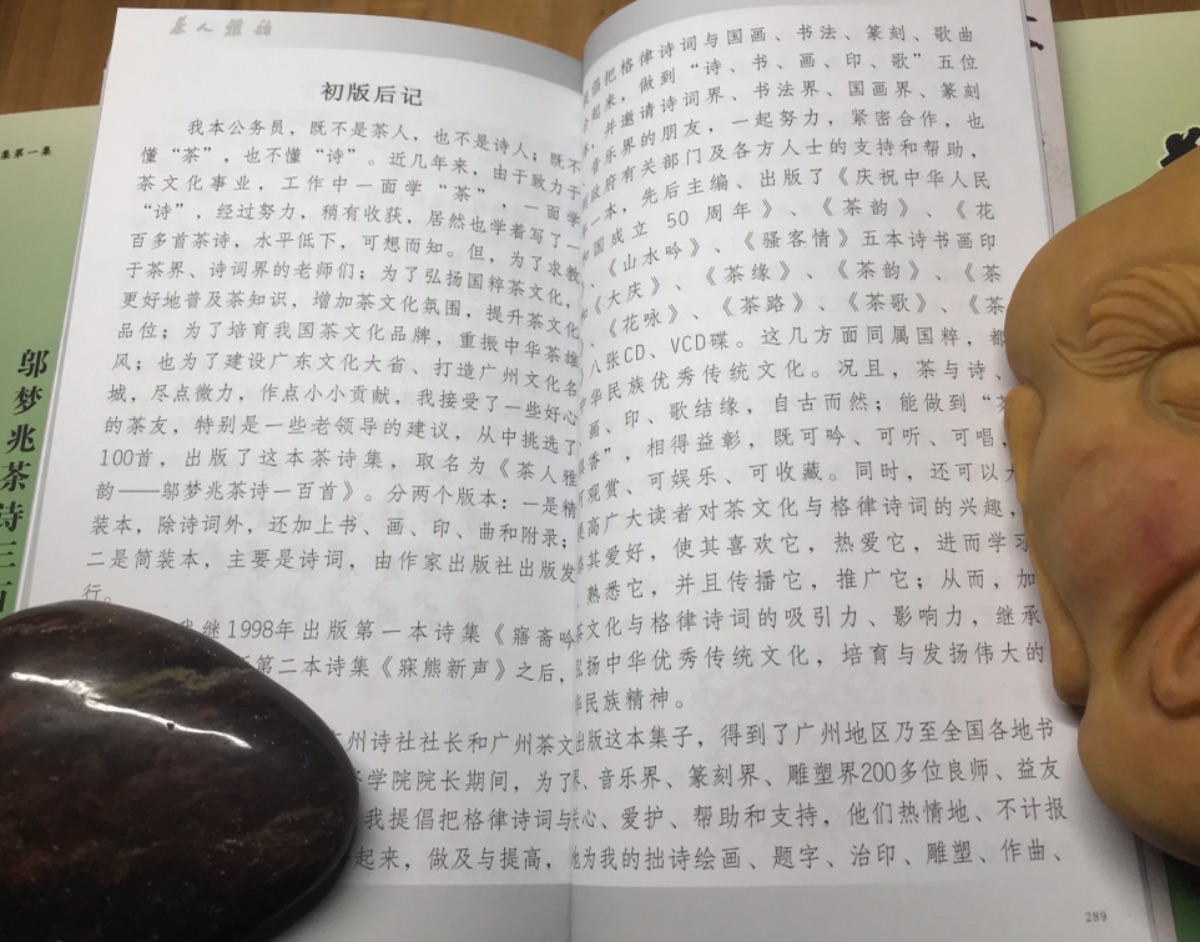 集第一集
邬梦兆茶诗三百
茶人雅韵
初版后记
我本公务员，既不是茶人，也不是诗人；既不
懂“茶”，也不懂“诗”。近几年来，由于致力于
茶文化事业，工作中一面学“茶”，一面学
“诗”，经过努力，稍有收获，居然也学着写了一
百多首茶诗，水平低下，可想而知。但，为了求教
于茶界、诗词界的老师们；为了弘扬国粹茶文化，
更好地普及茶知识，增加茶文化氛围，提升茶文化
品位；为了培育我国茶文化品牌，重振中华茶雄
风；也为了建设广东文化大省、打造广州文化名
城，尽点微力，作点小小贡献，我接受了一些好心
的茶友，特别是一些老领导的建议，从中挑选了
100首，出版了这本茶诗集，取名为《茶人雅
韵——邬梦兆茶诗一百首》。分两个版本：一是精
装本，除诗词外，还加上书、画、印、曲和附录；
二是简装本，主要是诗词，由作家出版社出版发
行。
我继1998年出版第一本诗集《寤斋吟
第二本诗集《寐熊新声》之后，
州诗社社长和广州茶文
学院院长期间，为了
我提倡把格律诗词与
起来，做及与提高，
倡把格律诗词与国画、书法、篆刻、歌曲
起来，做到“诗、书、画、印、歌”五位
，并邀请诗词界、书法界、国画界、篆刻
音乐界的朋友，一起努力，紧密合作，也
政府有关部门及各方人士的支持和帮助，
一本，先后主编、出版了《庆祝中华人民
国成立50周年》、《茶韵》、《花
、《山水吟》、《骚客情》五本诗书画印
《大庆》、《茶缘》、《茶韵》、《茶
、《花咏》、《茶路》、《茶歌》、《茶
八张CD、VCD碟。这几方面同属国粹，都
华民族优秀传统文化。况且，茶与诗、
画、印、歌结缘，自古而然；能做到“茶
香”，相得益彰，既可吟、可听、可唱，
观赏、可娱乐、可收藏。同时，还可以大
高广大读者对茶文化与格律诗词的兴趣，
其爱好，使其喜欢它，热爱它，进而学习
熟悉它，并且传播它，推广它；从而，加
茶文化与格律诗词的吸引力、影响力，继承
弘扬中华优秀传统文化，培育与发扬伟大的
华民族精神。
出版这本集子，得到了广州地区乃至全国各地书
、音乐界、篆刻界、雕塑界200多位良师、益友
心、爱护、帮助和支持，他们热情地、不计报
地为我的拙诗绘画、题字、治印、雕塑、作曲、
289